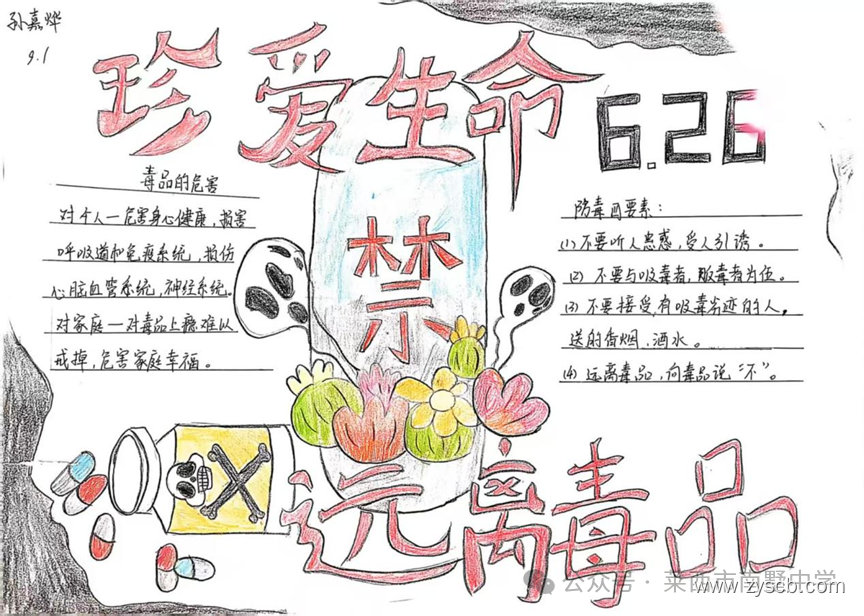 孙嘉烨
9.1
珍爱生命
6.26
毒品的危害
对个人一危害身心健康,损害
呼吸道和免疫系统,损伤
心脑血管系统,神经系统。
对家庭一对毒品上瘾难以
戒掉,危害家庭幸福。
禁
防毒四要素:
(1)不要听人怂惑,受人引诱。
(2)不要与吸毒者,贩毒者为伍。
(3)不要接受有吸毒劣迹的人,
送的香烟,酒水。
(4)远离毒品,向毒品说“不”。
远离毒品
公众号·莱西市南野中学
www.zyscb.com